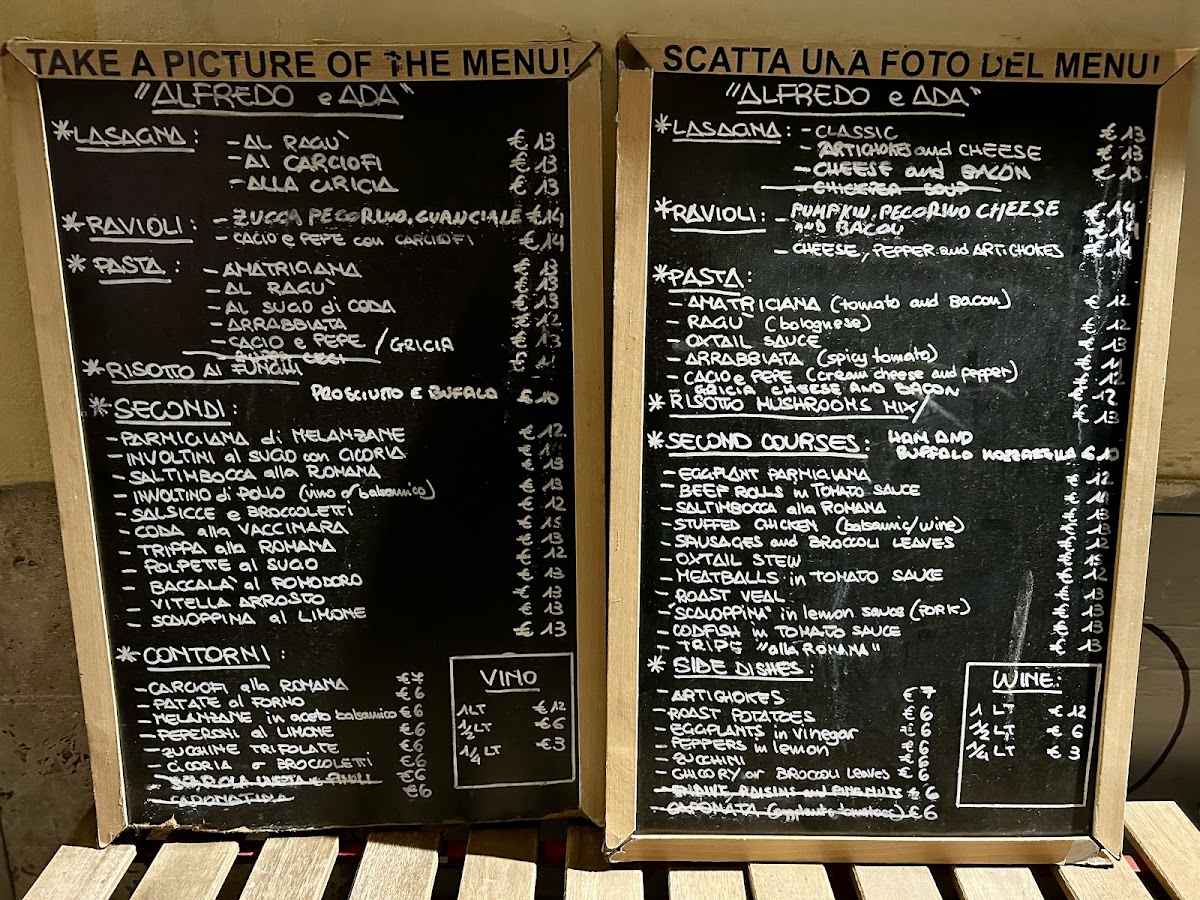 TAKE A PICTURE OF THE MENU!
"ALFREDO e ADA"
*LASAGNA: - AL RAGÙ € 13
- AI CARCIOFI € 13
- ALLA GRICIA € 13
*RAVIOLI: - ZUCCA PECORINO, GUANCIALE €14
- CACIO e PEPE con CARCIOFI €14
* PASTA: - AMATRICIANA € 13
- AL RAGÙ € 13
- AL SUGO di CODA € 13
- ARRABBIATA € 12
- CACIO e PEPE / GRICIA € 13
*RISOTTO AI FUNGHI
PROSCIUTTO E BUFALA € 10
* SECONDI:
- PARMIGIANA di MELANZANE € 12
- INVOLTINI al SUGO con CICORIA
- SALTIMBOCCA alla ROMANA € 13
- INVOLTINO di POLLO (vino o balsamico) € 13
- SALSICCE e BROCCOLETTI € 12
- CODA alla VACCINARA
- TRIPPA alla ROMANA € 13
- POLPETTE al SUGO € 12
- BACCALA' al POMODORO € 13
- VITELLA ARROSTO € 13
- SCALOPPINA al LIMONE € 13
€ 13
* CONTORNI:
- CARCIOFI alla ROMANA
- PATATE al FORNO € 6
- MELANZANE in aceto balsamico € 6
- PEPERONI al LIMONE € 6
- ZUCCHINE TRIFOLATE € 6
- CICORIA o BROCCOLETTI € 6
€6
- CAPONATINA €6
VINO
1LT € 12
1/2 LT € 6
1/4 LT € 3
SCATTA UNA FOTO DEL MENU!
"ALFREDO e ADA"
*LASAGNA: - CLASSIC € 13
- ARTICHOKES and CHEESE € 13
- CHEESE and BACON € 13
- CHICKPEA SOUP
*RAVIOLI: - PUMPKIN, PECORINO CHEESE € 14
AND BACON
- CHEESE, PEPPER and ARTICHOKES € 14
*PASTA:
- AMATRICIANA (tomato and Bacon) € 12
- RAGU' (bolognese) € 12
- OXTAIL SAUCE € 13
- ARRABBIATA (spicy tomato)
- CACIO e PEPE (cream cheese and pepper)
- GRICIA CHEESE AND BACON € 12
* RISOTTO MUSHROOMS MIX € 13
*SECOND COURSES: HAM AND
BUFFALO MOZZARELLA € 10
- EGGPLANT PARMIGIANA € 12
- BEEF ROLLS in TOMATO SAUCE
- SALTIMBOCCA alla ROMANA € 13
- STUFFED CHICKEN (balsamic/wine) € 13
- SAUSAGES and BROCCOLI LEAVES € 12
- OXTAIL STEW
- MEATBALLS in TOMATO SAUCE € 12
- ROAST VEAL
- "SCALOPPINA" in lemon sauce (PORK) € 13
- CODFISH in TOMATO SAUCE € 13
- TRIPE "alla ROMANA" € 13
* SIDE DISHES:
- ARTICHOKES € 7
- ROAST POTATOES € 6
- EGGPLANTS in vinegar € 6
- PEPPERS in lemon € 6
- ZUCCHINI € 6
- CHICORY or BROCCOLI leaves € 6
RAISINS and PINENUTS € 6
- CAPONATA € 6
WINE:
1 LT € 12
1/2 LT € 6
1/4 LT € 3